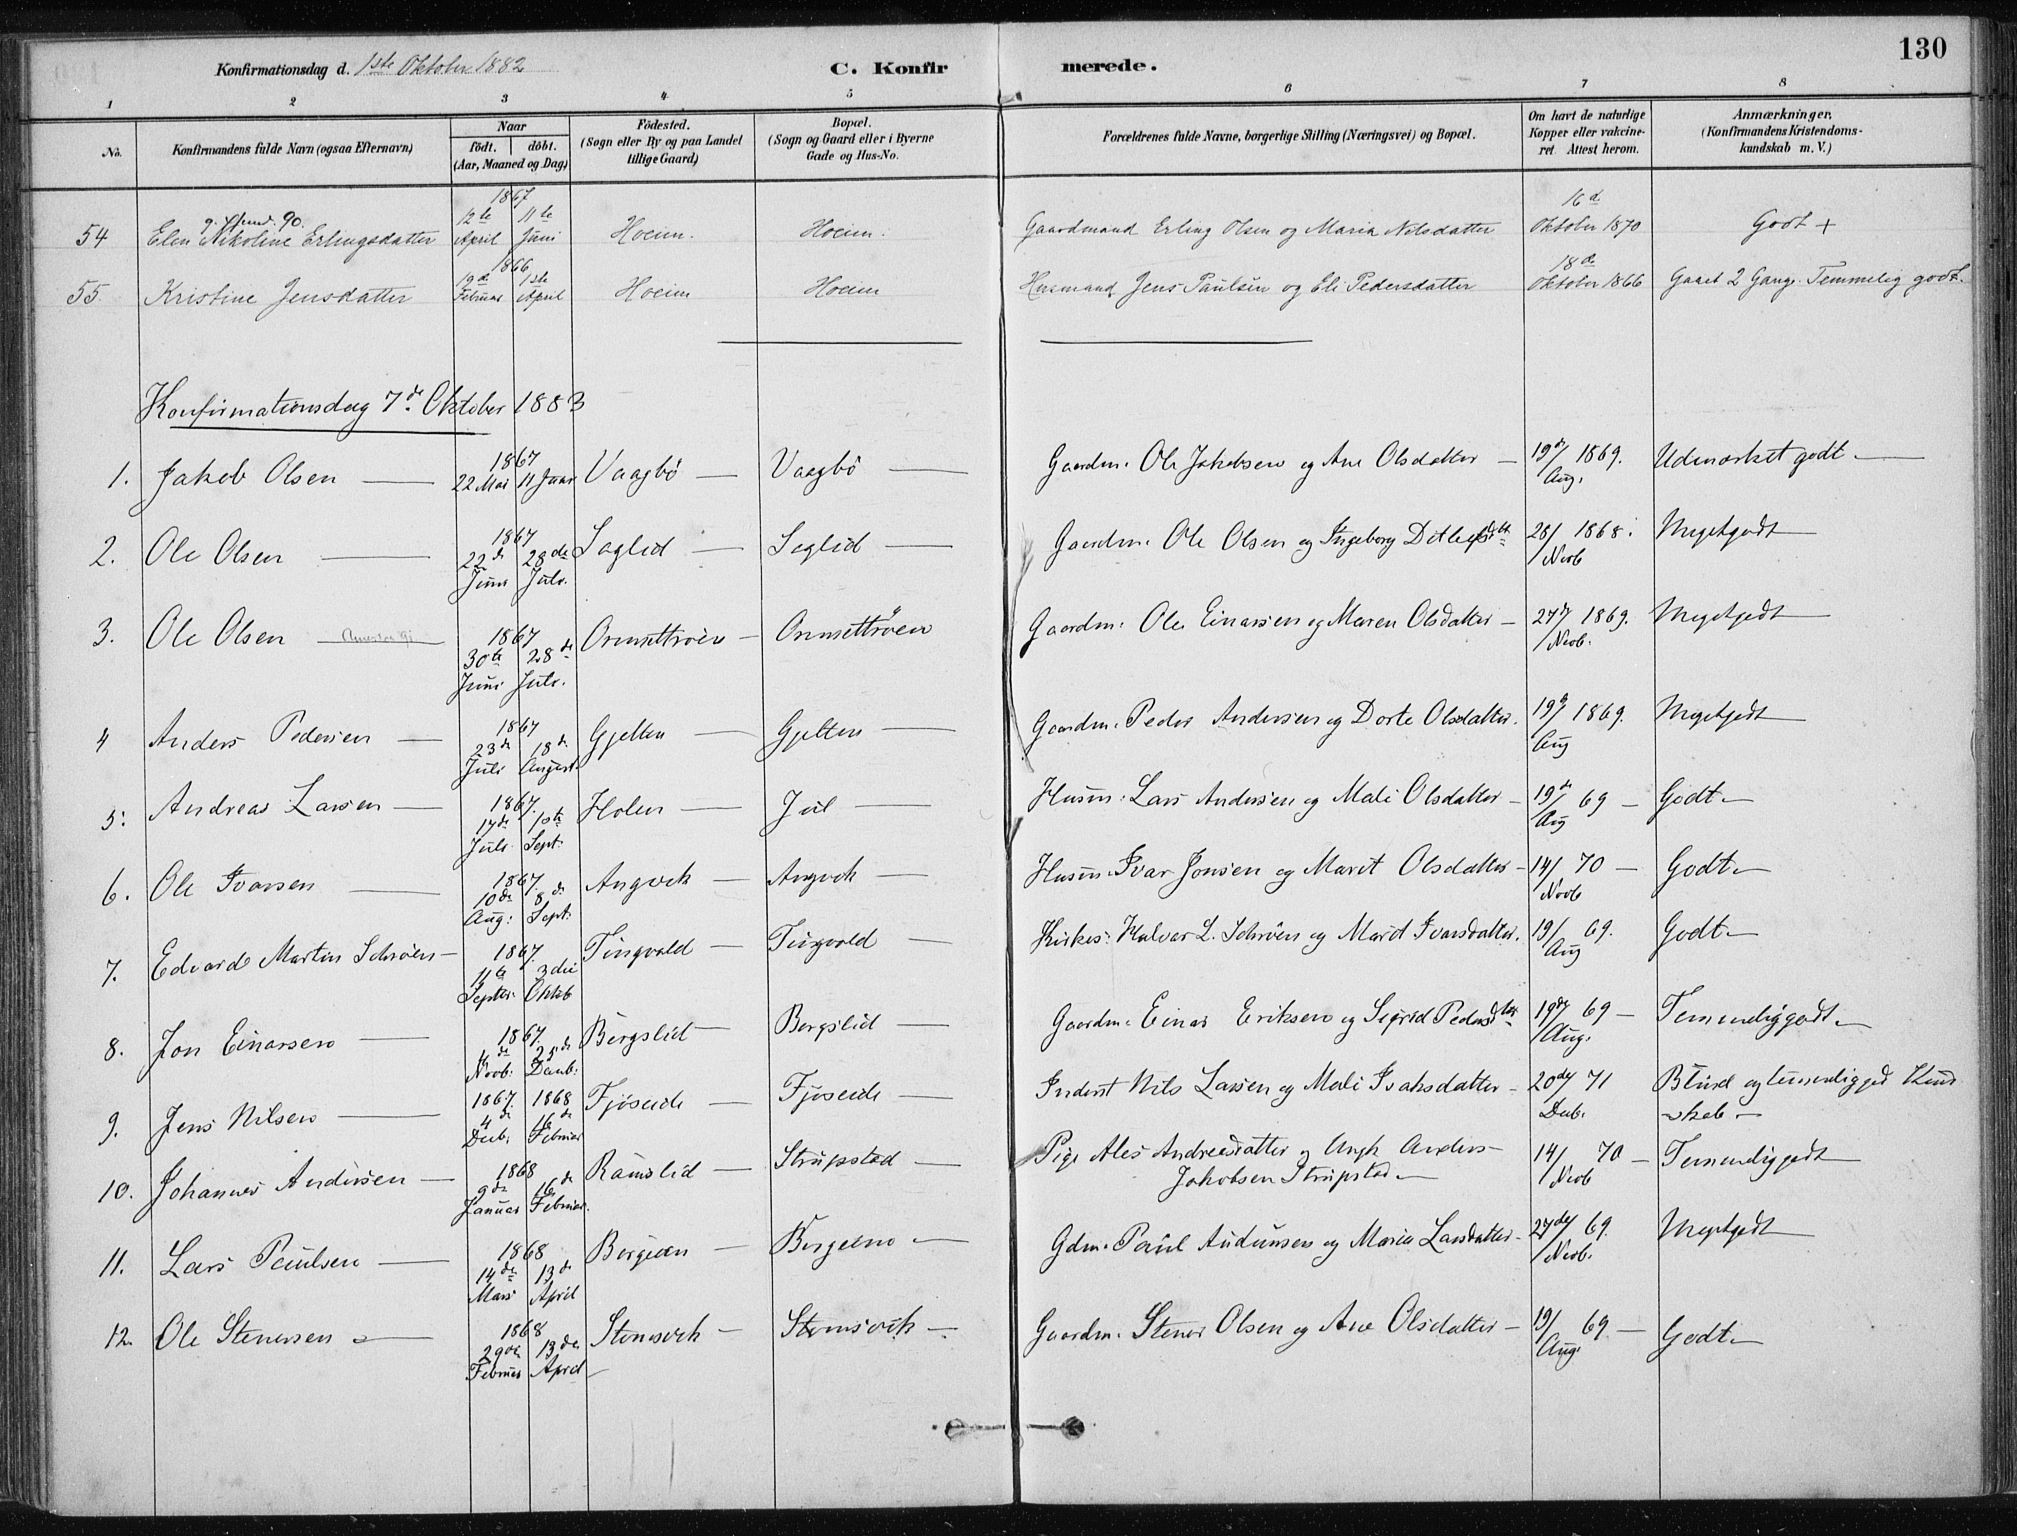 130
Konfirmationsdag d. 1ste Oktober 1882
C. Konfirmerede.
1 2 3 4 5 6 7 8
No. Konfirmandens fulde Navn (ogsaa Efternavn) Naar födt. döbt. (Aar, Maaned og Dag) Födested. (Sogn eller By og paa Landet tillige Gaard) Bopæl. (Sogn og Gaard eller i Byerne Gade og Hus-No. Forældrenes fulde Navne, borgerlige Stilling (Næringsvei) og Bopæl. Om havt de naturlige Kopper eller vakcineret. Attest herom. Anmærkninger. (Konfirmandens Kristendomskundskab m. V.)
54 Elen Nikoline Erlingsdatter 1867 12te April 11te Juni Hoeim. Hoeim. Gaardmand Erling Olsen og Maria Nilsdatter 16d Oktober 1870 Godt +
55 Kristine Jensdatter 1866 19de Februar 1ste April Hoeim Hoeim Husmand Jens Paulsen og Eli Pedersdatter 18de Oktober 1866 Gaaet 2 Gange. Temmelig godt.
Konfirmationsdag 7de Oktober 1883
1. Jakob Olsen — 1867 22 Mai 11 Juni Vaagbö — Vaagbö — Gaardm. Ole Jakobsen og Ane Olsdatter — 19de/Aug. 1869. Udmærket godt —
2. Ole Olsen — 1867 22de Juni 28de Juli. Seglid — Seglid — Gaardm. Ole Olsen og Ingeborg Ditlefsdtr 28/Novb 1868. Megetgodt —
3. Ole Olsen — 1867 30te Juni 28de Juli. Ormsettröen — Ormsettröen Gaardm. Ole Einarsen og Maren Olsdatter — 27de/Novb. 1869. Megetgodt —
4 Anders Pedersen — 1867 23de Juli 18de August. Gjelten — Gjelten — Gaardm. Peder Andersen og Dorte Olsdatter. 19de/Aug 1869. Megetgodt —
5. Andreas Larsen — 1867. 17de Juli 1ste Sept. Holen — Jul — Husm. Lars Andersen og Mali Olsdatter — 19de/Aug 69 — Godt —
6. Ole Ivarsen — 1867. 10de Aug: 8de Sept. Angvik — Angvik — Husm. Ivar Jonsen og Marit Olsdatter — 14/Novb 70 — Godt —
7. Edvard Martin Schröen — 1867. 11te Septbr. 3die Oktob Tingvold — Tingvold — Kirkes. Halvar L. Schröen og Marit Ivarsdatter. 19/Aug 69. Godt —
8. Jon Einarsen — 1867. Novb. 25de Decb. Bergslid — Bergslid — Gaardm. Einar Eriksen og Sigrid Pedersdtr 19de/Aug. 69 — Temmeliggodt —
9. Jens Nilsen — 1867. 4de Decb. 1868 16de Februar Fjöseide — Fjöseide — Inderst Nils Larsen og Mali Isaksdatter — 20de/Decb. 71 Blind og temmeliggod Kundskab —
10. Johannes Andersen — 1868 9de Januar 16de Februar. Ramslid — Strupstad — Pige Ales Andreasdatter og Ungk Anders Jakobsen Strupstad — 14/Novb 70 — Temmeliggodt —
11. Lars Paulsen — 1868 14de Mars 13de April Bergeim — Bergeim — Gdm. Paul Audunsen og Maria Larsdatter — 27de/Novb. 69. Megetgodt
12. Ole Stenersen — 1868 29de Februar 13de April Stensvik — Stensvik — Gaardm. Stener Olsen og Ane Olsdatter — 19/Aug. 69. — Godt —